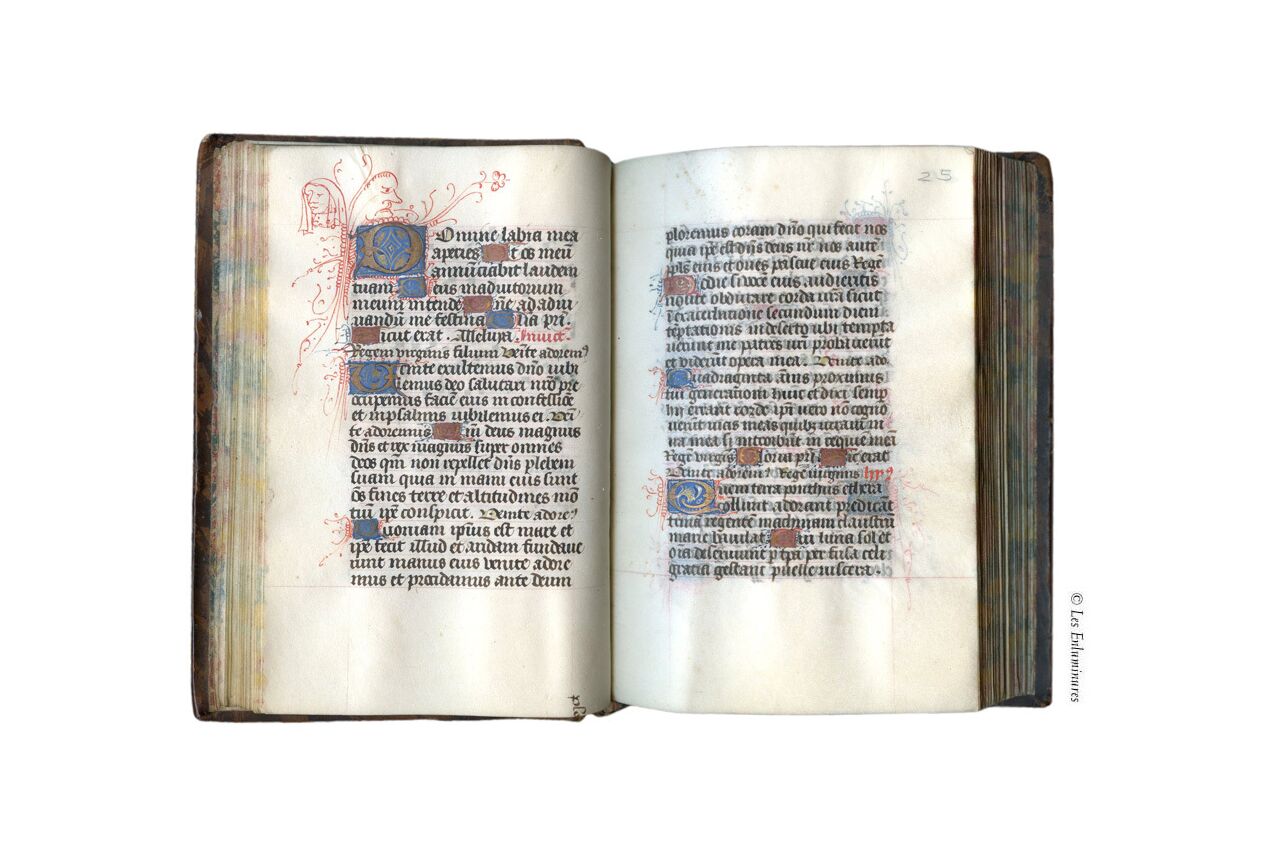 Omine labia mea
aperies Et os meū
annūciabit laudem
tuam Deus in adiutorium
meum intende Dne ad adiu
uandū me festina Glia pri.
Sicut erat. Alleluya. Inuict'
Regem virginis filium Veīte adorem9
Venite exultemus dn̄o iubi
lemus deo salutari nr̄o pre
occupemus faciē eius in confessiōe
et in psalmis iubilemus ei. Veīt
te adoremus Qm̄ deus magnus
dn̄s et rex magnus super omnes
deos qm̄ non repellet dn̄s plebem
suam quia in manu eius sunt
oēs fines terre et altitudines mō
tiū ip̄e conspicit. Venite adore9
Quoniam ip̄ius est mare et
ip̄e fecit illud et aridam fundaue
runt manus eius venite adore
mus et procidamus ante deum
plo
25
ploremus coram dn̄o qui fecit nos
quia ip̄e est dn̄s deus nr̄ nos aute
ppl̄s eius et oues pascue eius Regē
Hodie si vocē eius audieritis
nolite obdurare corda vr̄a sicut
in exacerbatione secundum diem
tēptationis in deserto ubi tempta
uerunt me patres vr̄i probauerūt
et viderūt opera mea. Venite ado.
Quadraginta annis proximus
fui generationi huic et dixi semp
hii errant corde ip̄i vero nō cogno
uerūt vias meas quibus iuraui in
ira mea si introibūt in requiē meā
Regē virgīs Gloria pri Sicut erat
Venite adorem9 Regē virginis hyp9
Quem terra ponthus ethera
colunt adorant predicāt
trinā regentē machinam claustrū
marie baiulat Cui luna sol et
oīa deseruiunt p tp̄a perfusa celi
gratia gestant puelle viscera.
© Les Enluminures